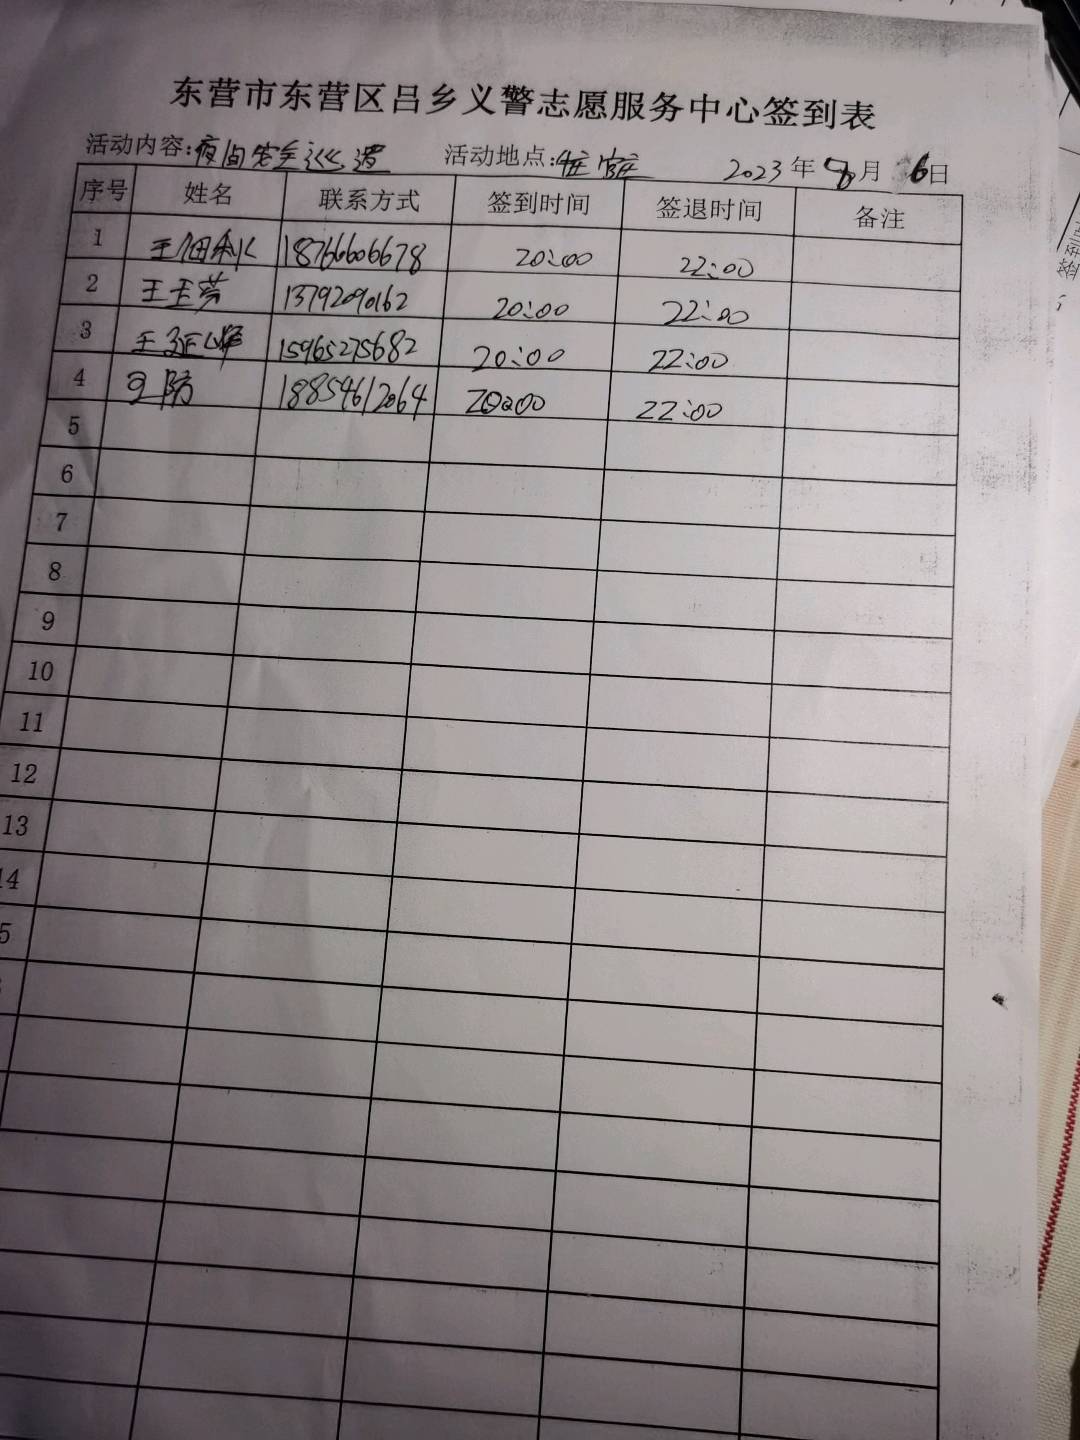 东营市东营区吕乡义警志愿服务中心签到表
活动内容:夜间安全巡逻 活动地点: 2023年8月6日
序号 姓名 联系方式 签到时间 签退时间 备注
1 王佃利 18766606678 20:00 22:00
2 王玉芳 13792090162 20:00 22:00
3 王延 15965275682 20:00 22:00
4 防 18854612064 20:00 22:00
5
6
7
8
9
10
11
12
13
14
5